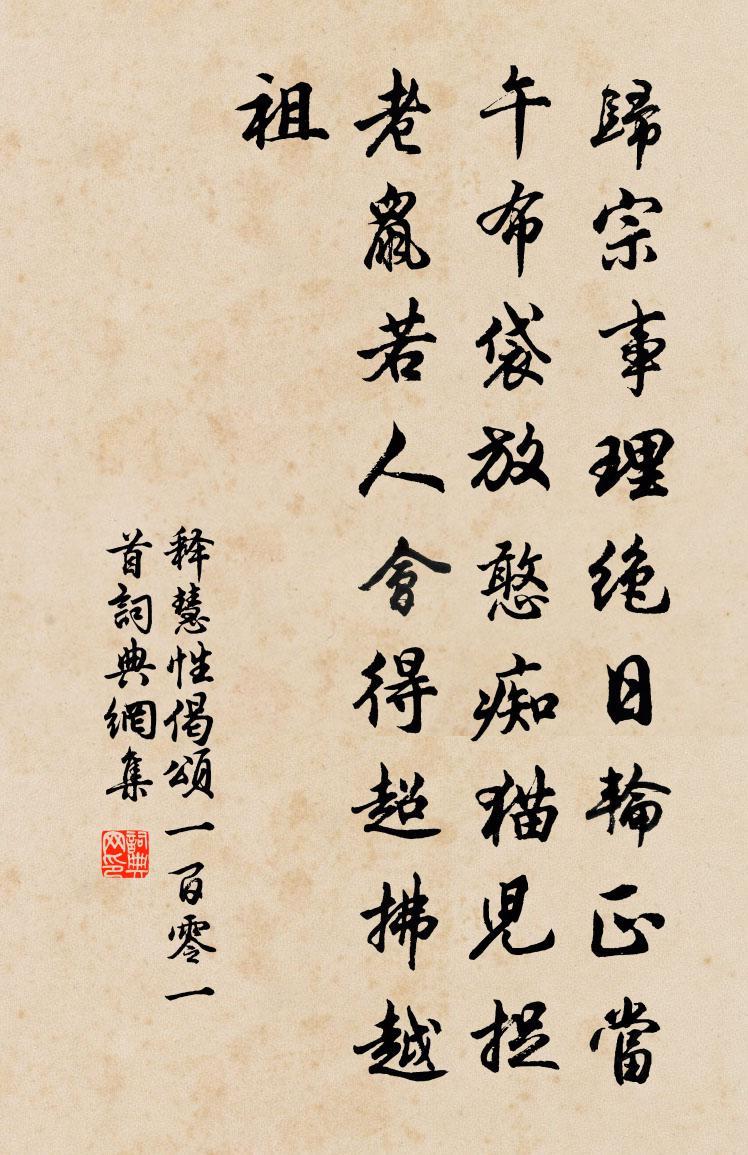 歸宗事理絶日輪正當
午布袋放憨痴猫兒捉
老鼠若人會得超拂越
祖
释慧性偈頌一百零一
首詞典網集
詞典
网印